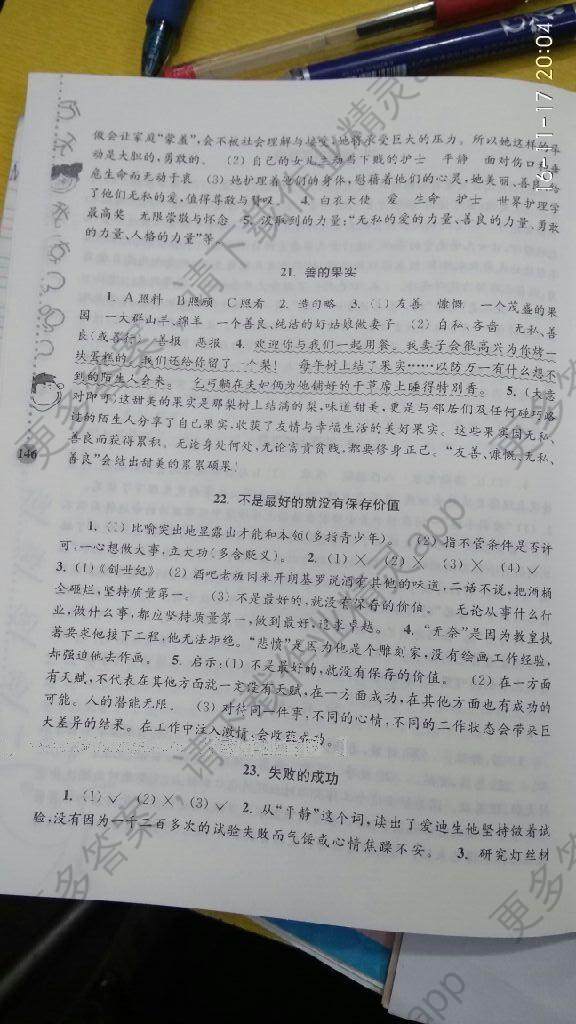 做会让家庭“蒙羞”,会不被社会理解与接受,她将承受巨大的压力。所以她这样的举
动是大胆的,勇敢的。 (2) 自己的女儿 当卑下贱的护士 平静 面对伤口
危生命而无动于衷 (3) 她护理着他们的身体,慰藉着他们的心灵,她美丽、善良
了他们无私的爱,值得尊敬与赞叹。 4. 白衣天使 爱 生命 护士 世界护理学
最高奖 无限崇敬与怀念 5. 汲取到的力量:“无私的爱的力量、善良的力量、勇敢
的力量、人格的力量”等。
21. 善的果实
1. A 照料 B 照顾 C 照看 2. 造句略 3. (1) 友善 慷慨 一个茂盛的果
园 一大群山羊、绵羊 一个善良、纯洁的好姑娘做妻子 (2) 自私、吝啬 无私、善
良(或善行) 善报 恶报 4. 欢迎你与我们一起用餐。我妻子会很高兴为你烤一
块蛋糕的。我们还给你留了一个梨! 每年树上结了果实……以防万一有什么想不
到的陌生人会来。 乞丐躺在夫妇俩为他铺好的干草席上睡得特别香。 5. (大意
对即可)这甜美的果实是那梨树上结满的梨,味道甜美,更是与邻居们及任何碰巧路
过的陌生人分享了自己果实,收获了友情与幸福生活的美好果实。这些果实因无私、
善良而获得累积。无论身处何处,无论富贵贫贱,都要修身正己。“友善、慷慨、无私、
善良”会结出甜美的累累硕果!
146
22. 不是最好的就没有保存价值
1. (1) 比喻突出地显露出才能和本领(多指青少年)。 (2) 指不管条件是否许
可,一心想做大事,立大功(多含贬义)。 2. (1) × (2) × (3) × (4) ✓
3. (1)《创世纪》 (2) 酒吧老板同米开朗基罗说酒有其他的味道,二话不说,把酒桶
全砸烂,坚持质量第一。 (3) 不是最好的,就没有保存的价值。 无论从事什么行
业,做什么事,都应坚持质量第一,做到最好,追求卓越。 4. “无奈”是因为教皇执
著要求他接下工程,他无法拒绝。“悲愤”是因为他是个雕刻家,没有绘画工作经验,
却强迫他去作画。 5. 启示:(1) 不是最好的,就没有保存的价值。 (2) 在一方面
有天赋,不代表在其他方面就一定没有天赋,在一方面成功,在其他方面也有成功的
可能。人的潜能无限。 (3) 对待同一件事,不同的心情,不同的工作状态会带来巨
大差异的结果。在工作中注入激情,会收获成功。
23. 失败的成功
1. (1) ✓ (2) × (3) ✓ 2. 从“平静”这个词,读出了爱迪生他坚持做着试
验,没有因为一千二百多次的试验失败而气馁或心情焦躁不安。 3. 研究灯丝材
16-11-17 20:04
更多答案 请下载作业精灵app